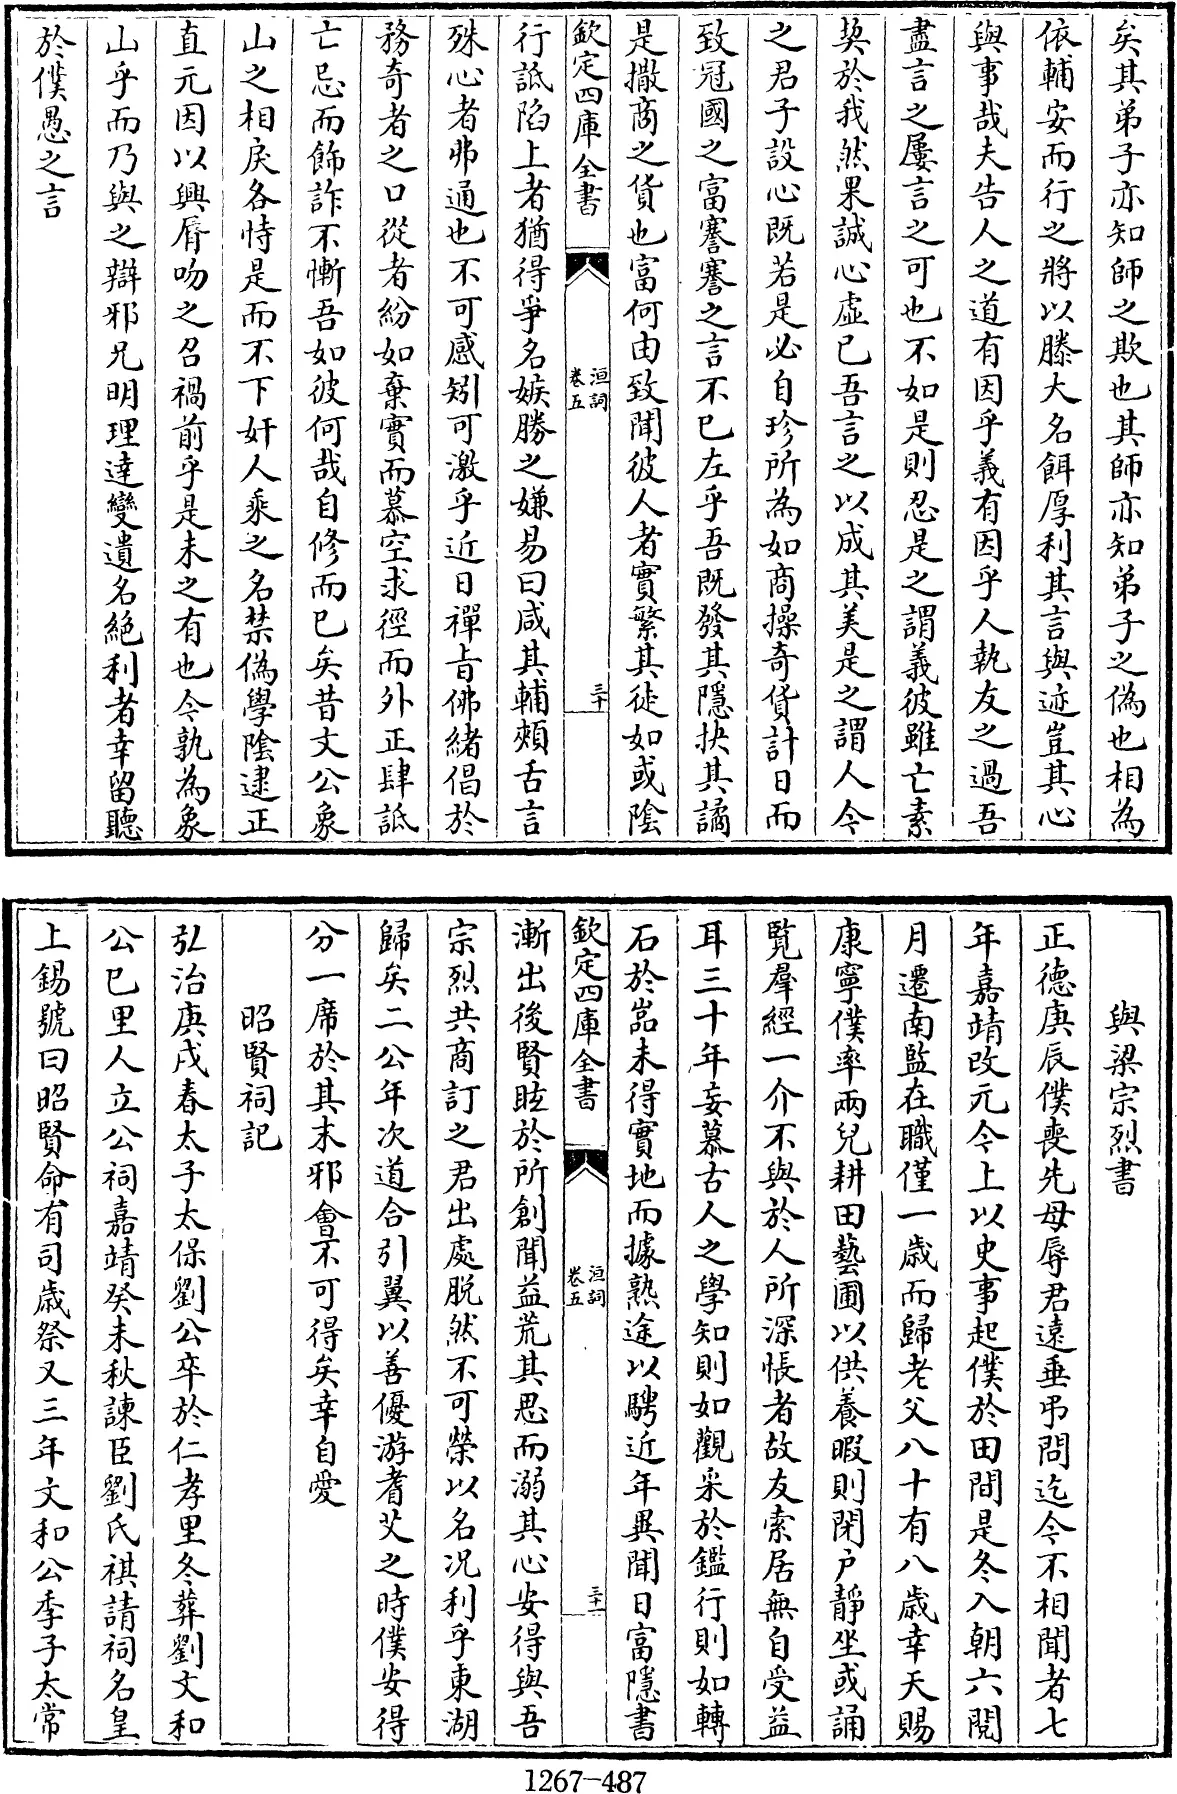 矣其弟子亦知師之欺也其師亦知弟子之偽也相為
依輔安而行之將以滕大名餌厚利其言與迹豈其心
與事哉夫告人之道有因乎義有因乎人執友之過吾
盡言之屢言之可也不如是則忍是之謂義彼雖亡素
契於我然果誠心虛已吾言之以成其美是之謂人今
之君子設心既若是必自珍所為如商操奇貨計日而
致冠國之富謇謇之言不已左乎吾既發其隱抉其譎
是撒商之貨也富何由致聞彼人者實繁其徒如或陰
欽定四庫全書
洹詞
卷五
三十
行詆陷上者猶得爭名嫉勝之嫌易曰咸其輔頰舌言
殊心者弗通也不可感矧可激乎近日禪旨佛緒倡於
務奇者之口從者紛如棄實而慕空求徑而外正肆詆
亡忌而飾詐不慚吾如彼何哉自修而已矣昔文公象
山之相戾各恃是而不下奸人乘之名禁偽學陰逮正
直元因以興脣吻之召禍前乎是未之有也今孰為象
山乎而乃與之辯邪兄明理達變遺名絕利者幸留聽
於僕愚之言
與梁宗烈書
正德庚辰僕喪先母辱君遠垂弔問迄今不相聞者七
年嘉靖改元今上以史事起僕於田間是冬入朝六閱
月遷南監在職僅一歲而歸老父八十有八歲幸天賜
康寧僕率兩兒耕田藝圃以供養暇則閉户靜坐或誦
覽羣經一介不與於人所深悵者故友索居無自受益
耳三十年妄慕古人之學知則如觀采於鑑行則如轉
石於嵓未得實地而據熟途以騁近年異聞日富隱書
欽定四庫全書
洹詞
卷五
三十一
漸出後賢眩於所創聞益荒其思而溺其心安得與吾
宗烈共商訂之君出處脱然不可榮以名况利乎東湖
歸矣二公年次道合引翼以善優游耆艾之時僕安得
分一席於其末邪會不可得矣幸自愛
昭賢祠記
弘治庚戌春太子太保劉公卒於仁孝里冬葬劉文和
公已里人立公祠嘉靖癸未秋諫臣劉氏祺請祠名皇
上錫號曰昭賢命有司歲祭又三年文和公季子太常
1267—487